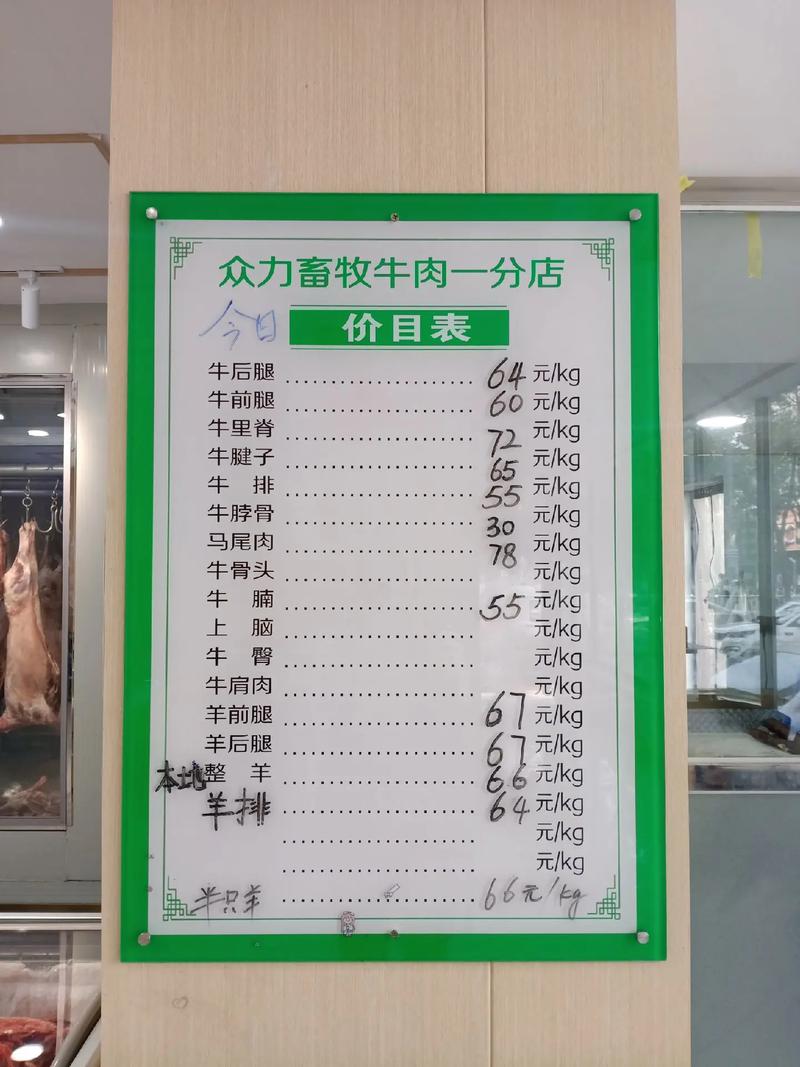 众力畜牧牛肉一分店
今日 价目表
牛后腿 ........................ 64 元/kg
牛前腿 ........................ 60 元/kg
牛里脊 ........................ 72 元/kg
牛腱子 ........................ 65 元/kg
牛 排 ........................ 55 元/kg
牛脖骨 ........................ 30 元/kg
马尾肉 ........................ 78 元/kg
牛骨头 ........................ 元/kg
牛 腩 ........................ 55 元/kg
上 脑 ........................ 元/kg
牛 臀 ........................ 元/kg
牛肩肉 ........................ 元/kg
羊前腿 ........................ 67 元/kg
羊后腿 ........................ 67 元/kg
本地整 羊 ........................ 66 元/kg
羊排 ........................ 64 元/kg
........................ 元/kg
........................ 元/kg
半只羊 ........................ 66元/kg